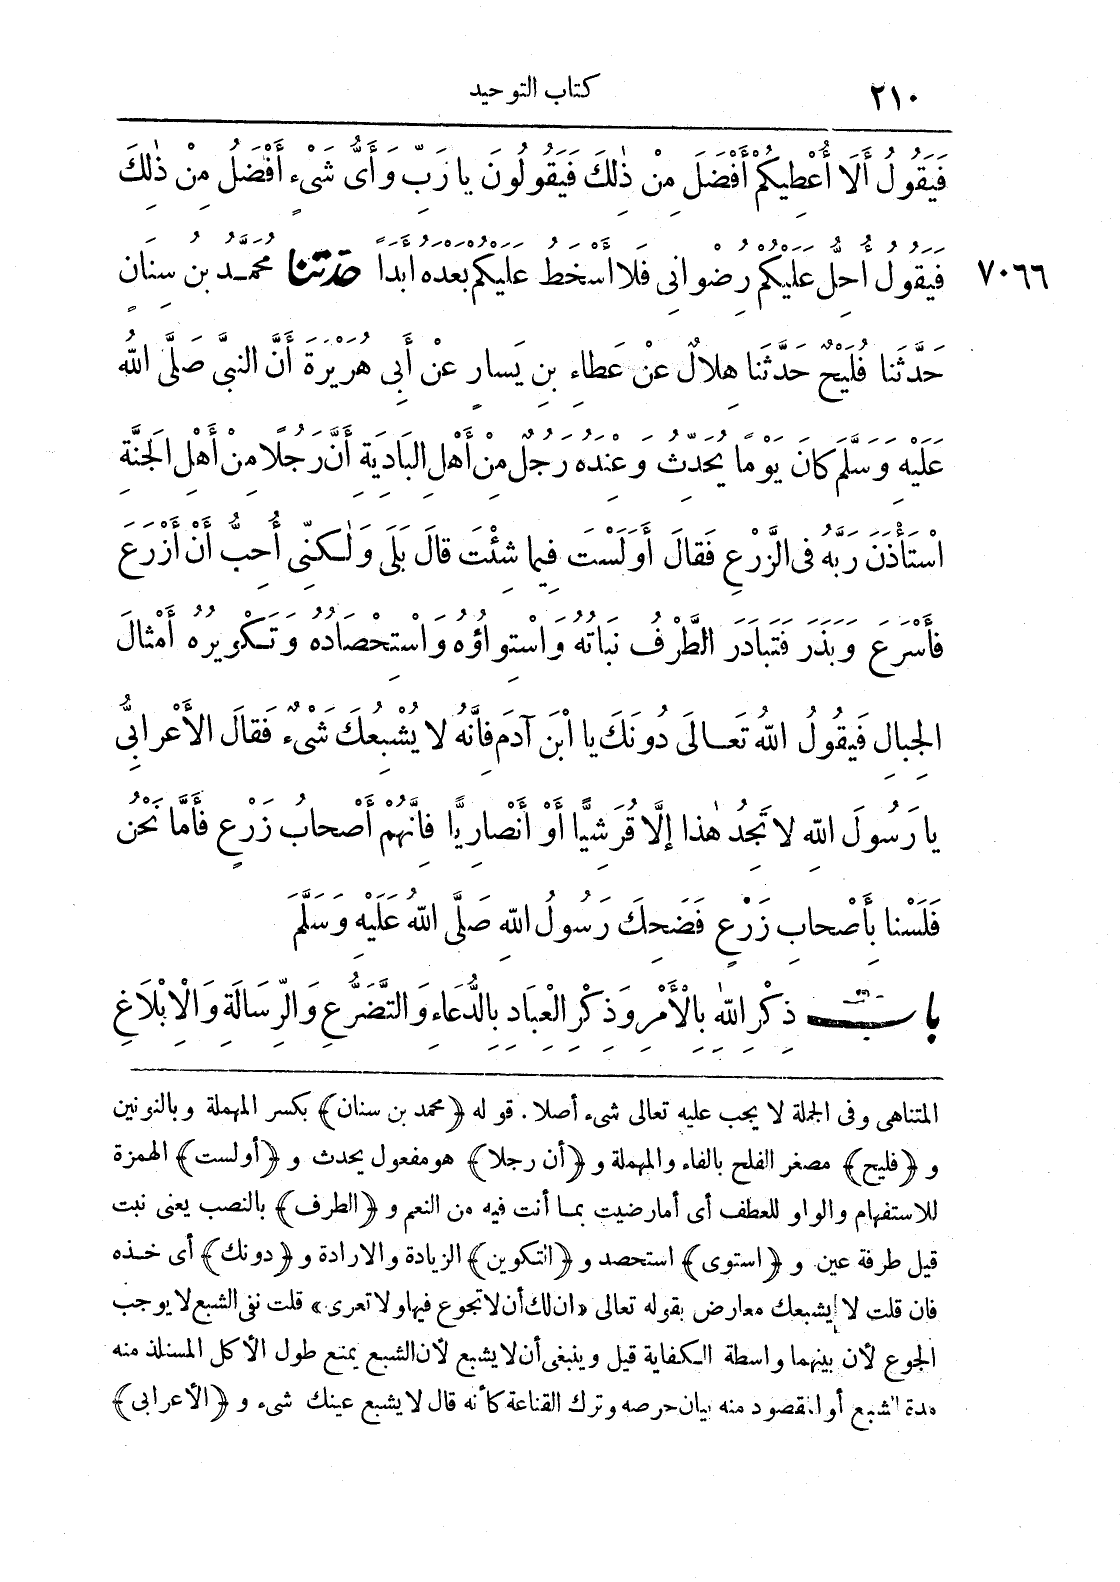 ٢١٠ كتاب التوحيد
فَيَقُولُ أَلَا أُعْطِيكُمْ أَفْضَلَ مِنْ ذٰلِكَ فَيَقُولُونَ يا رَبِّ وَأَىُّ شَىْءٍ أَفْضَلُ مِنْ ذٰلِكَ
٧٠٦٦ فَيَقُولُ أُحِلُّ عَلَيْكُمْ رِضْوانِى فَلا أَسْخَطُ عَلَيْكُمْ بَعْدَهُ أَبَداً حَدَّثَنا مُحَمَّدُ بنُ سِنَانٍ
حَدَّثَنا فُلَيْحٌ حَدَّثَنا هِلالٌ عَنْ عَطاءِ بنِ يَسارٍ عَنْ أَبِى هُرَيْرَةَ أَنَّ النبىَّ صَلَّى اللهُ
عَلَيْهِ وَسَلَّمَ كانَ يَوْماً يُحَدِّثُ وَعِنْدَهُ رَجُلٌ مِنْ أَهْلِ البادِيَةِ أَنَّ رَجُلًا مِنْ أَهْلِ الجَنَّةِ
اسْتَأْذَنَ رَبَّهُ فى الزَّرْعِ فَقالَ أَوَلَسْتَ فِيما شِئْتَ قالَ بَلَى وَلٰكِنِّى أُحِبُّ أَنْ أَزْرَعَ
فَأَسْرَعَ وَبَذَرَ فَتَبادَرَ الطَّرْفَ نَباتُهُ وَاسْتِواؤُهُ وَاسْتِحْصادُهُ وَتَكْوِيرُهُ أَمْثالَ
الجِبالِ فَيَقُولُ اللهُ تَعالَى دُونَكَ يا ابْنَ آدَمَ فَانَّهُ لا يُشْبِعُكَ شَىْءٌ فَقالَ الأَعْرابِىُّ
يا رَسُولَ اللهِ لا تَجِدُ هٰذا إلَّا قُرَشِيًّا أَوْ أَنْصارِيًّا فَانَّهُمْ أَصْحابُ زَرْعٍ فَأَمَّا نَحْنُ
فَلَسْنا بِأَصْحابِ زَرْعٍ فَضَحِكَ رَسُولُ اللهِ صَلَّى اللهُ عَلَيْهِ وَسَلَّمَ
بابُ ذِكْرِ اللهِ بِالْأَمْرِ وَذِكْرِ الْعِبَادِ بِالدُّعَاءِ وَالتَّضَرُّعِ وَالرِّسَالَةِ وَالْاِبْلَاغِ
المتناهى وفى الجملة لا يجب عليه تعالى شىء أصلا. قوله ﴿محمد بن سنان﴾ بكسر المهملة وبالنونين
و ﴿فليح﴾ مصغر الفلح بالفاء والمهملة و ﴿أن رجلا﴾ هو مفعول يحدث و ﴿أولست﴾ الهمزة
للاستفهام والواو للعطف أى أما رضيت بما أنت فيه من النعم و ﴿الطرف﴾ بالنصب يعنى نبت
قبل طرفة عين و ﴿استوى﴾ استحصد و ﴿التكوين﴾ الزيادة والارادة و ﴿دونك﴾ أى خذه
فان قلت لا يشبعك معارض بقوله تعالى «ان لك أن لا تجوع فيها ولا تعرى» قلت نفى الشبع لا يوجب
الجوع لأن بينهما واسطة الكفاية قيل وينبغى أن لا يشبع لأن الشبع يمنع طول الأكل المستلذ منه
مدة الشبع أو المقصود منه بيان حرصه وترك القناعة كأنه قال لا يشبع عينك شىء و ﴿الأعرابى﴾